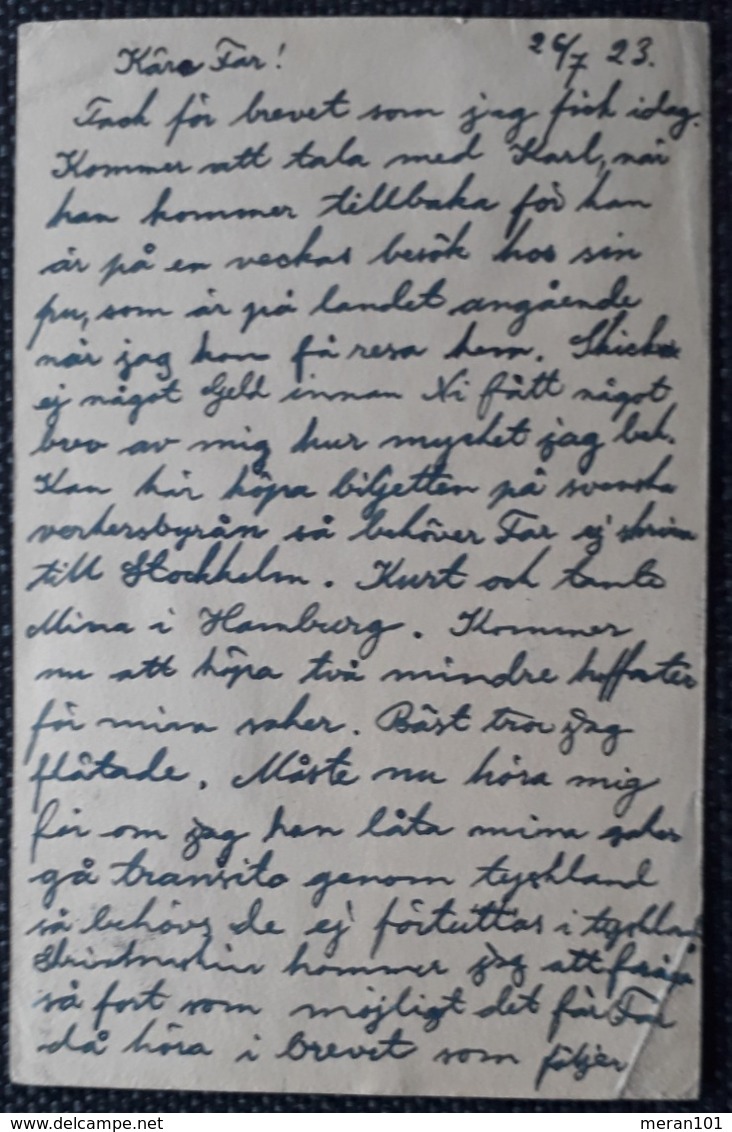 Käre Far! 26/7 23.
Tack för brevet som jag fick idag.
Kommer att tala med Karl, när
han kommer tillbaka för han
är på en veckas besök hos sin
som är på landet angående
när jag kan få resa hem. Skicka
ej något Geld innan Ni fått något
brev av mig hur mycket jag beh.
Kan här köpa biljetten på svenska
så behöver Far ej skriva
till Stockholm. Kurt och tante
Mina i Hamburg. Kommer
nu att köpa två mindre koffertar
för mina saker. Bäst tror jag
flätade. Måste nu höra mig
för om jag kan låta mina saker
gå transito genom tyskland
så behövs de ej förtullas i tyskland
kommer jag att
så fort som möjligt det får Far
då höra i brevet som följer
meran101